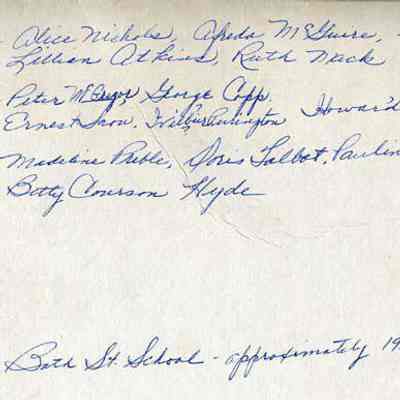 - Alice Nichols, Alfreda McGuire, -
Lillian Atkins, Ruth Mack
Peter McGregor, George Capp,
Ernest Snow, Wilbur Purington Howard
Madeline Preble, Doris Talbot, Paulin
Betty Courson Hyde
Bath St. School - approximately 19